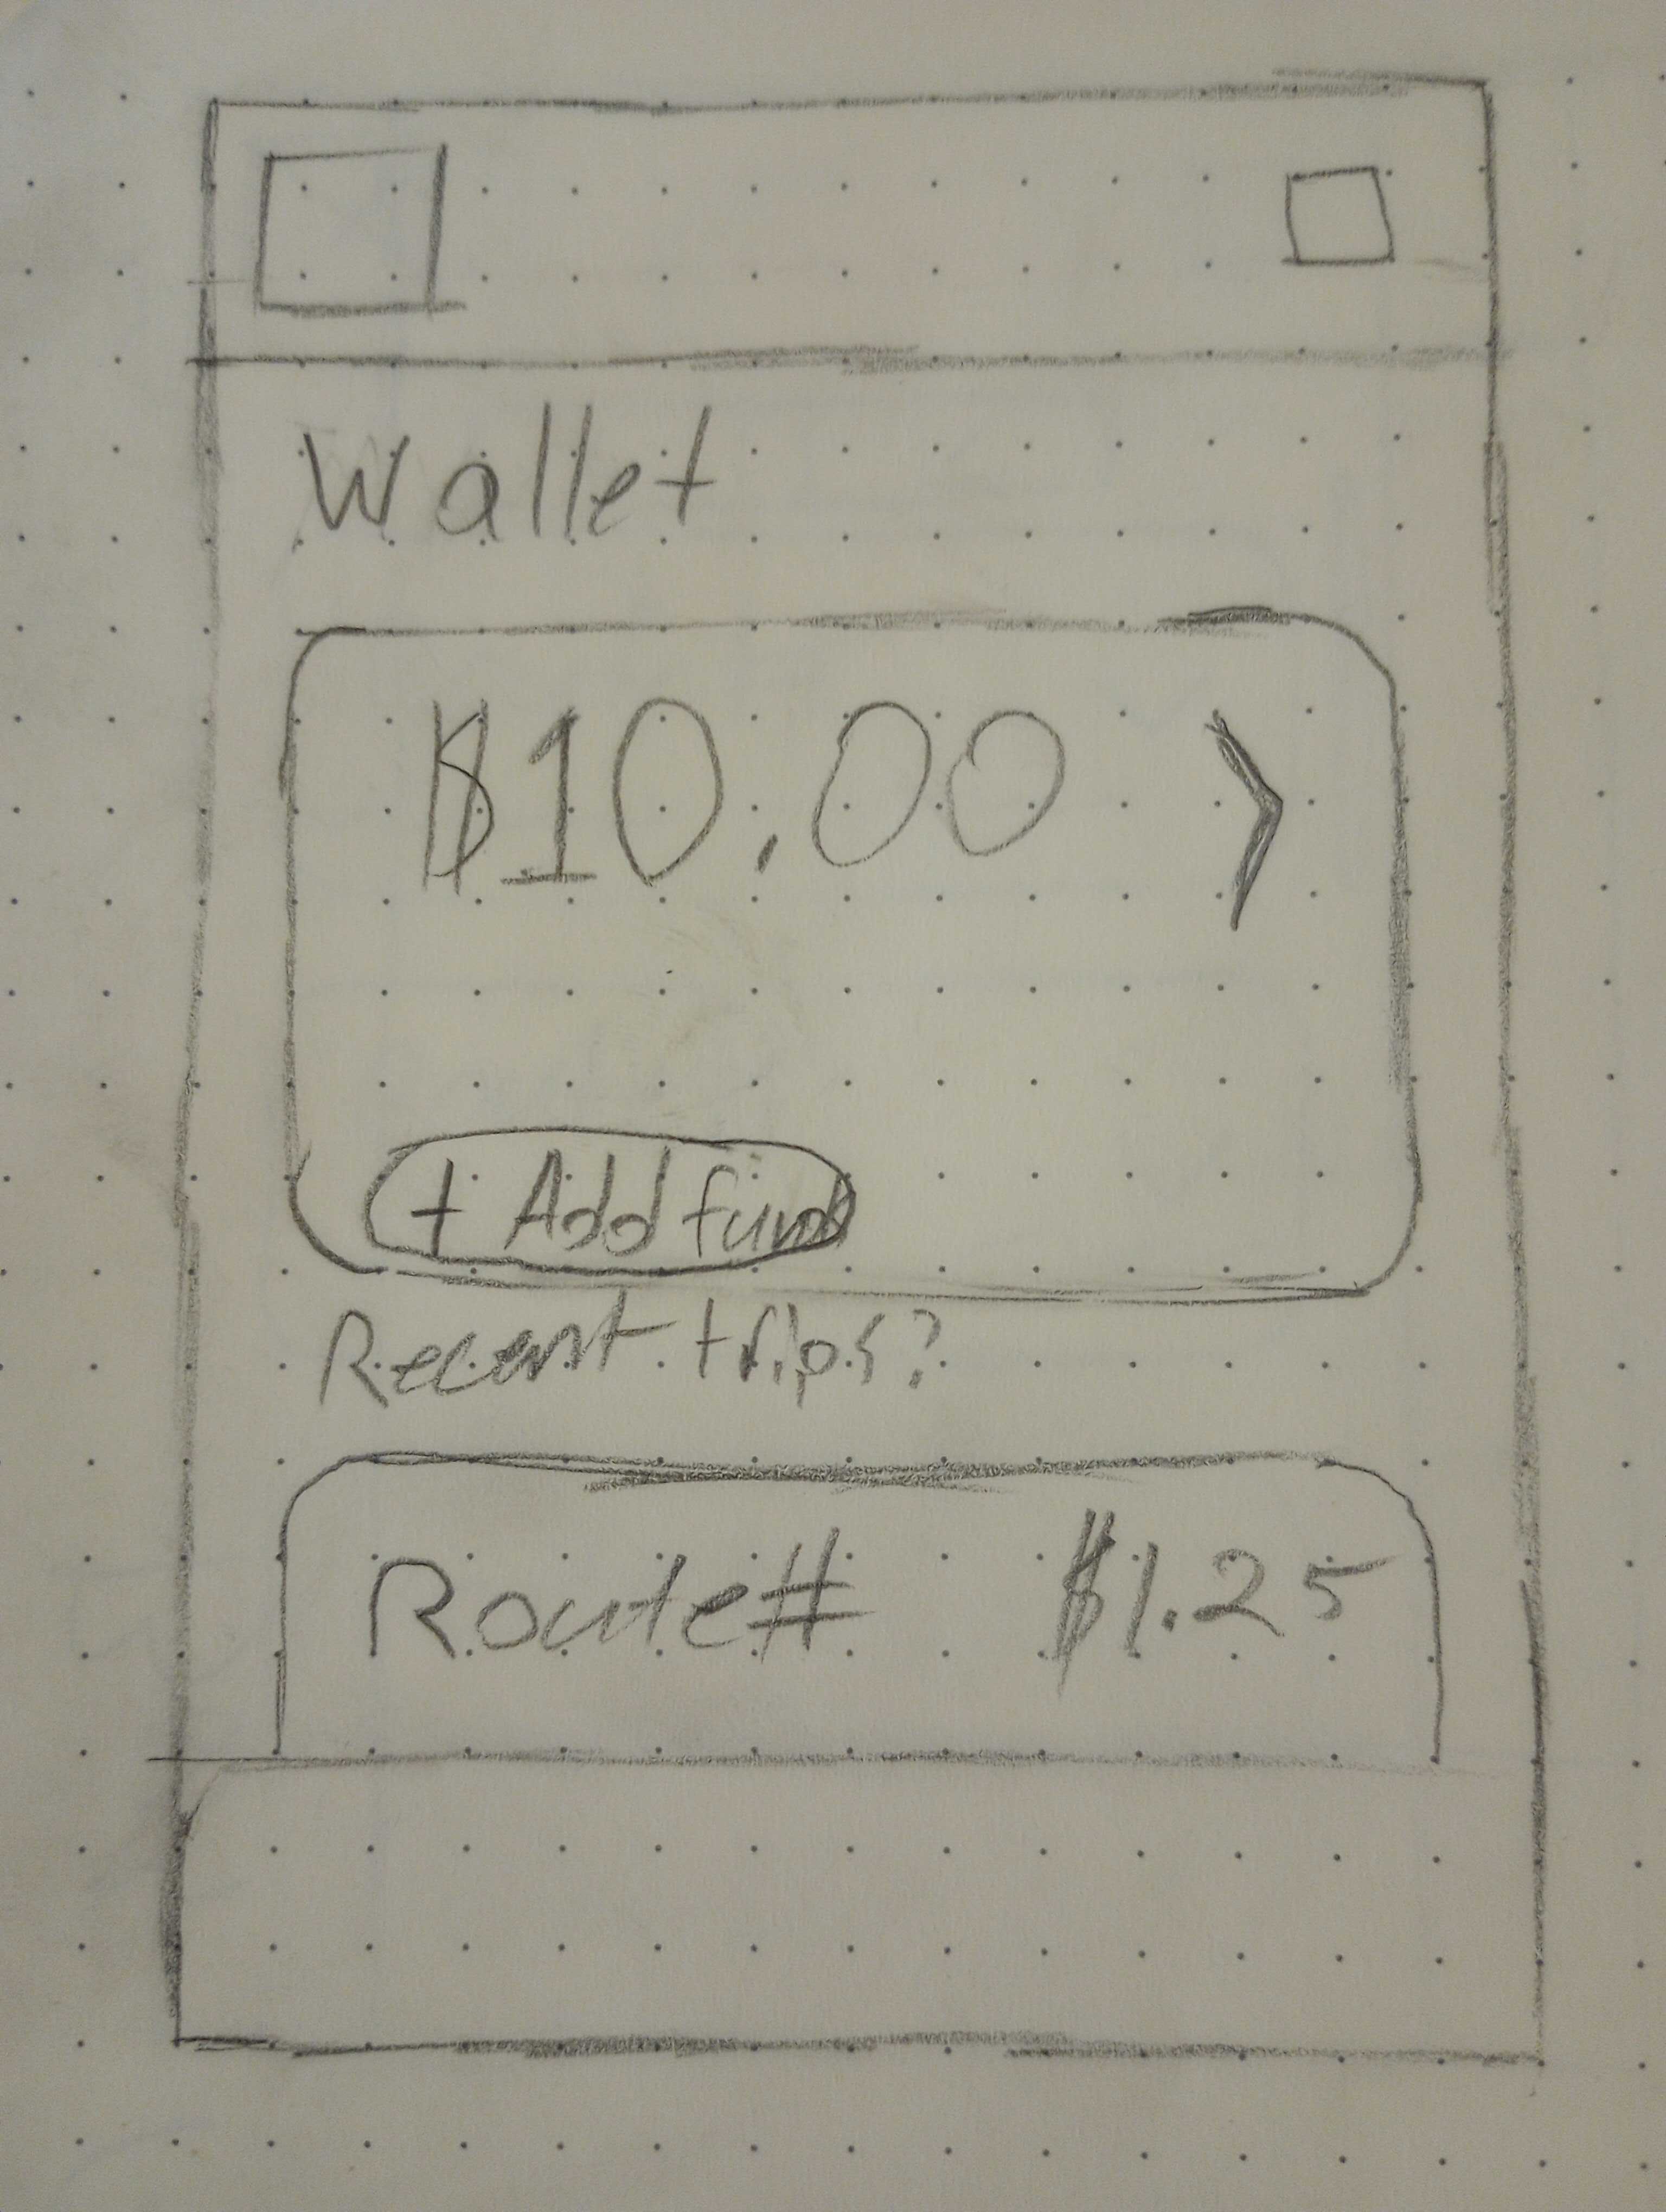 Wallet
$10.00 >
+ Add fund
Recent trips?
Route# $1.25